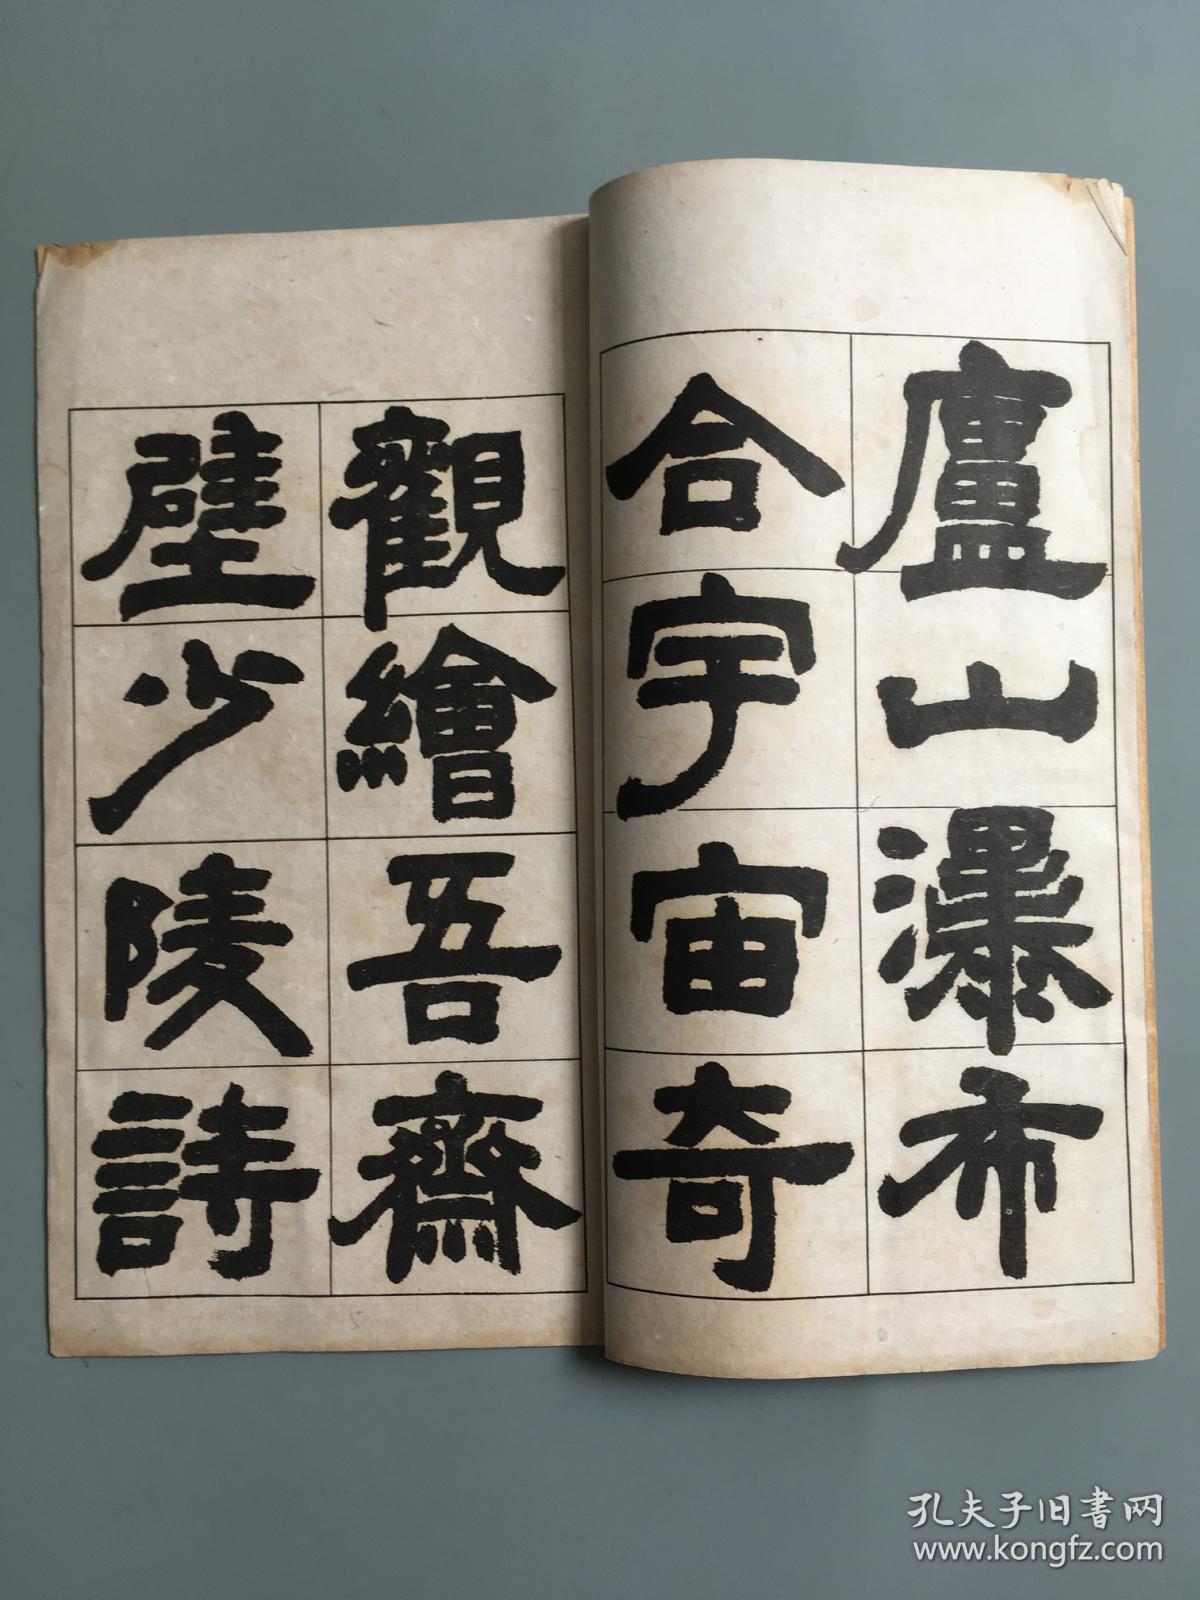 廬山瀑布
合宇宙奇
觀繪吾齋
壁少陵詩
孔夫子旧書网
www.kongfz.com